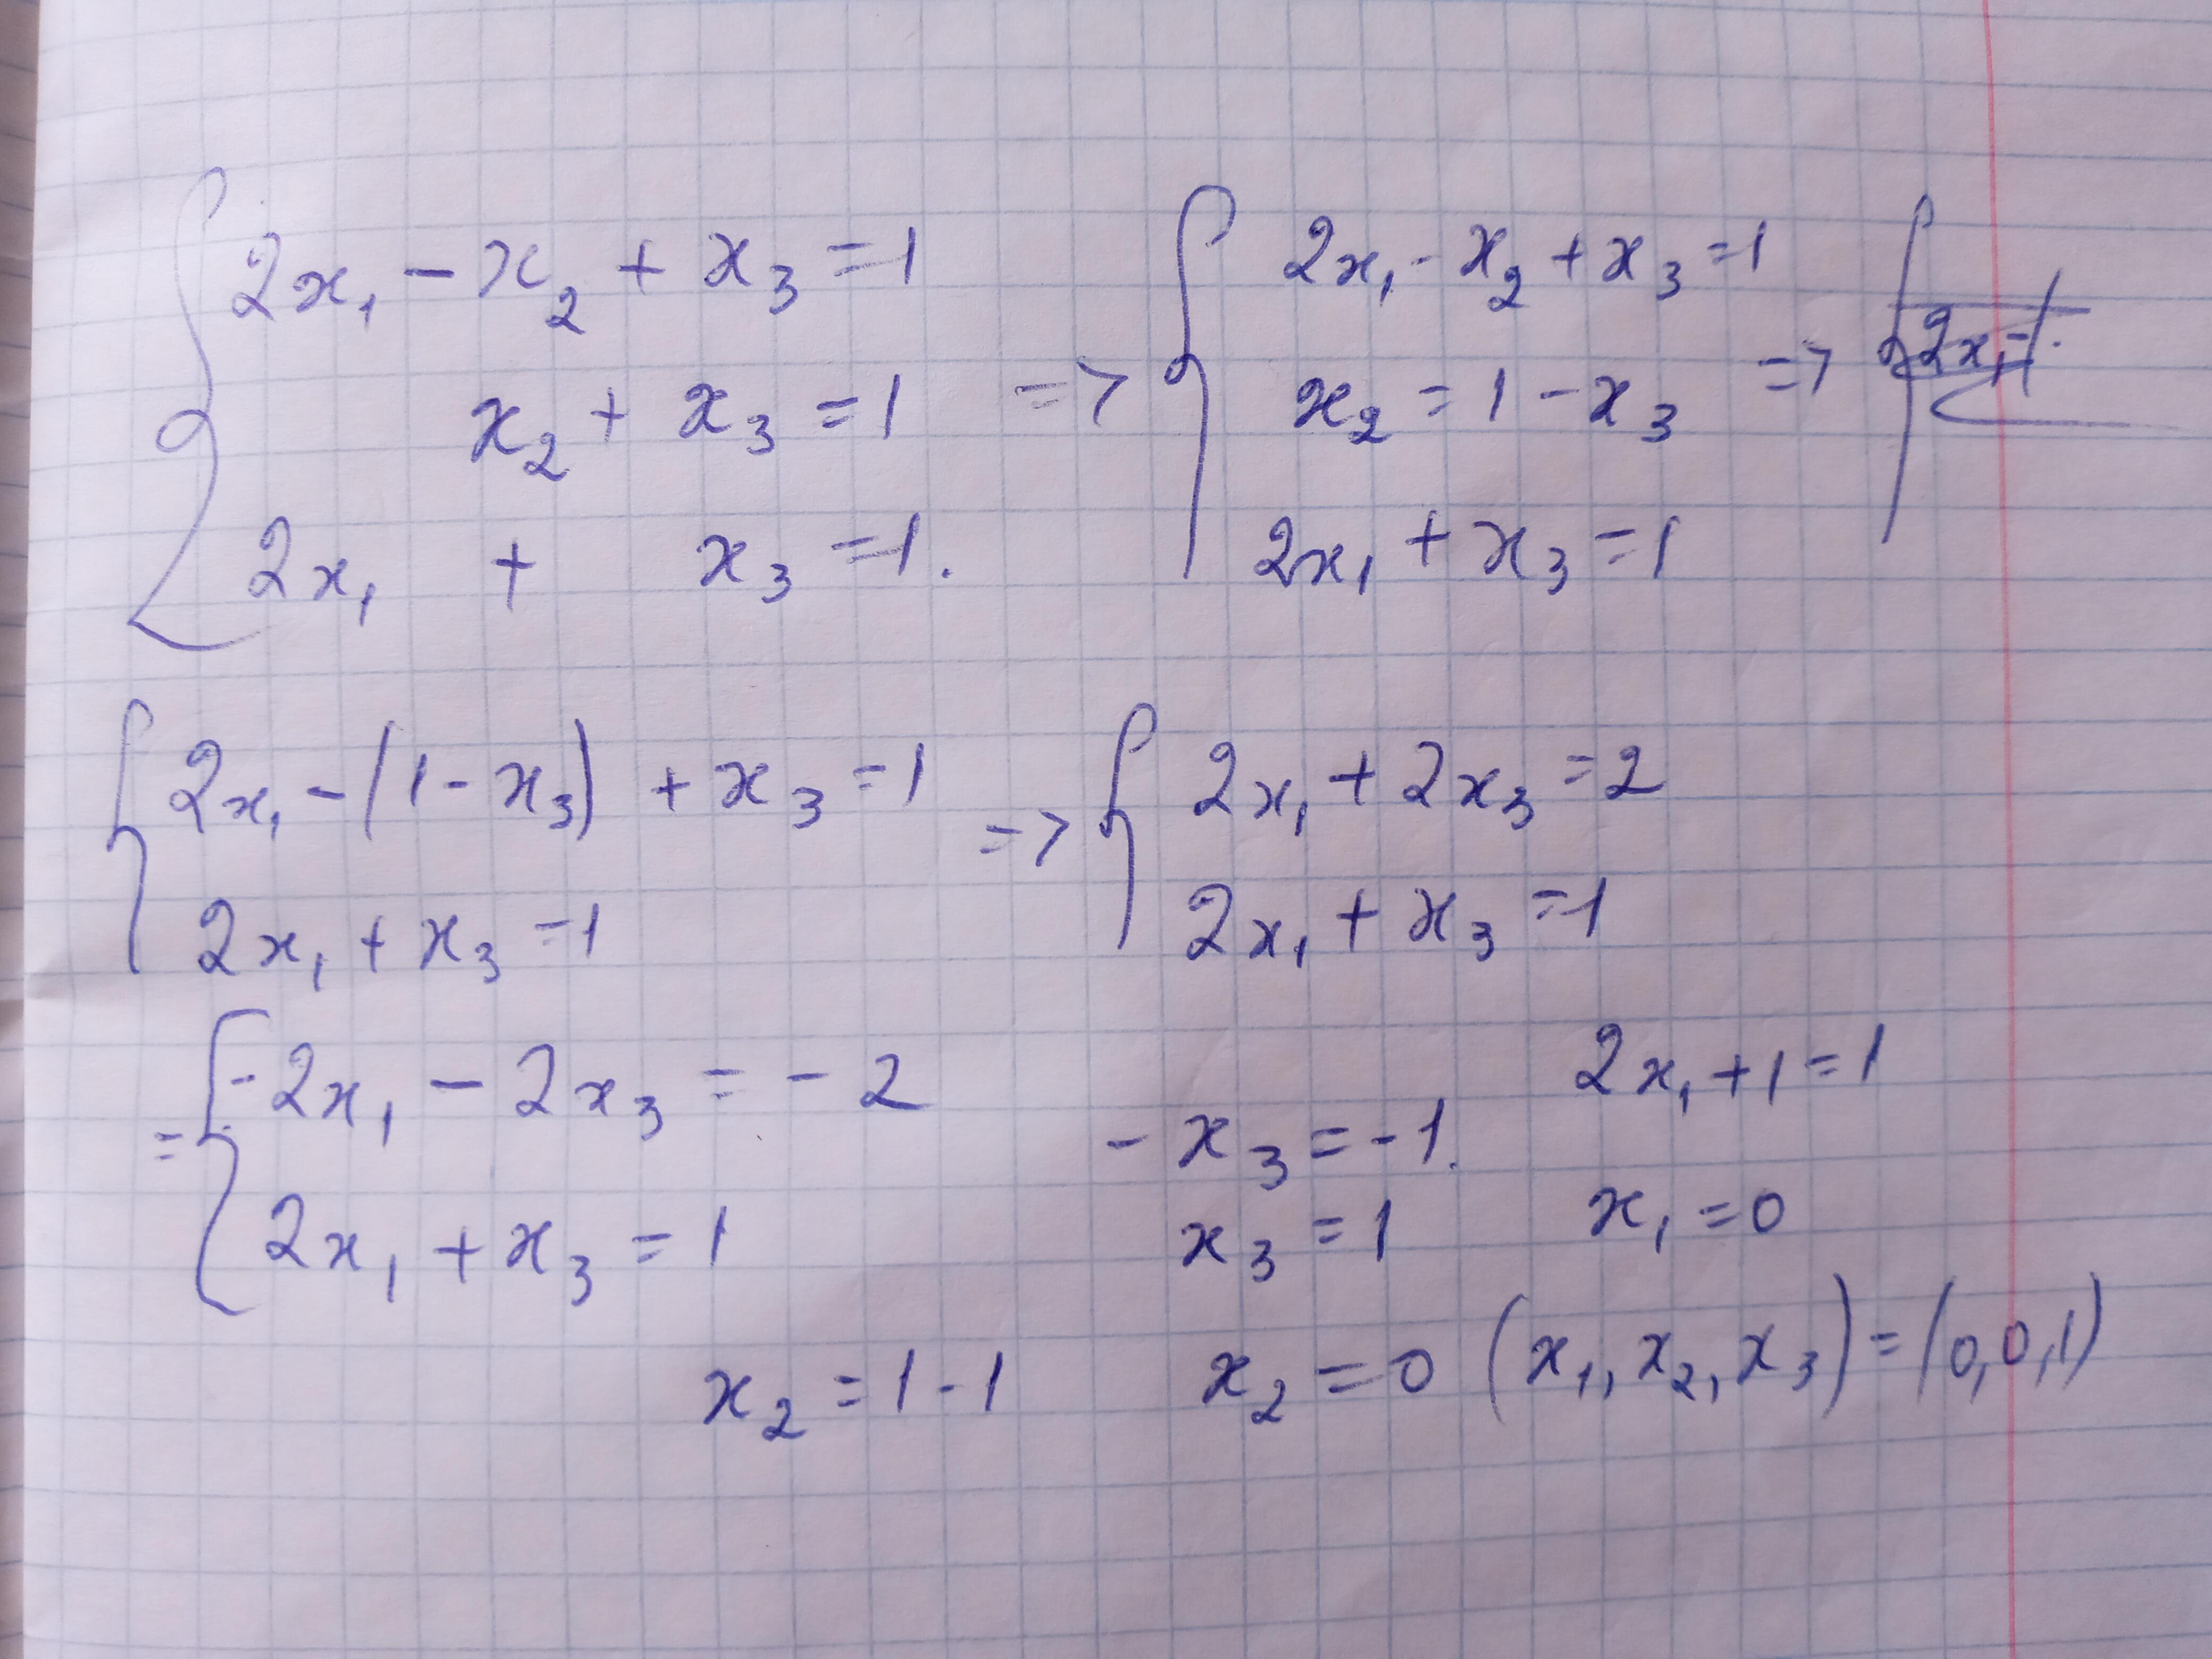 2x₁ - x₂ + x₃ = 1
x₂ + x₃ = 1
2x₁ + x₃ = 1.
=> 2x₁ - x₂ + x₃ = 1
x₂ = 1 - x₃
2x₁ + x₃ = 1
=>
2x₁ - (1 - x₃) + x₃ = 1
2x₁ + x₃ = 1
=> 2x₁ + 2x₃ = 2
2x₁ + x₃ = 1
= -2x₁ - 2x₃ = -2
2x₁ + x₃ = 1
-x₃ = -1.
x₃ = 1
2x₁ + 1 = 1
x₁ = 0
x₂ = 1 - 1
x₂ = 0 (x₁, x₂, x₃) = (0, 0, 1)